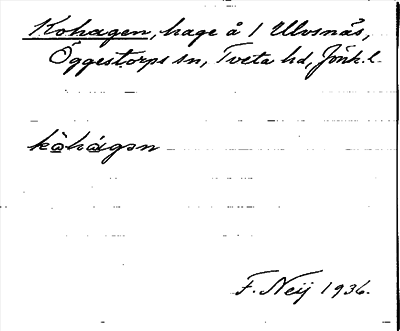 Kohagen, hage å 1 Ulvsnäs,
Öggestorps sn, Tveta hd, Jönk. l.
kὼhágən
F. Neij 1936.